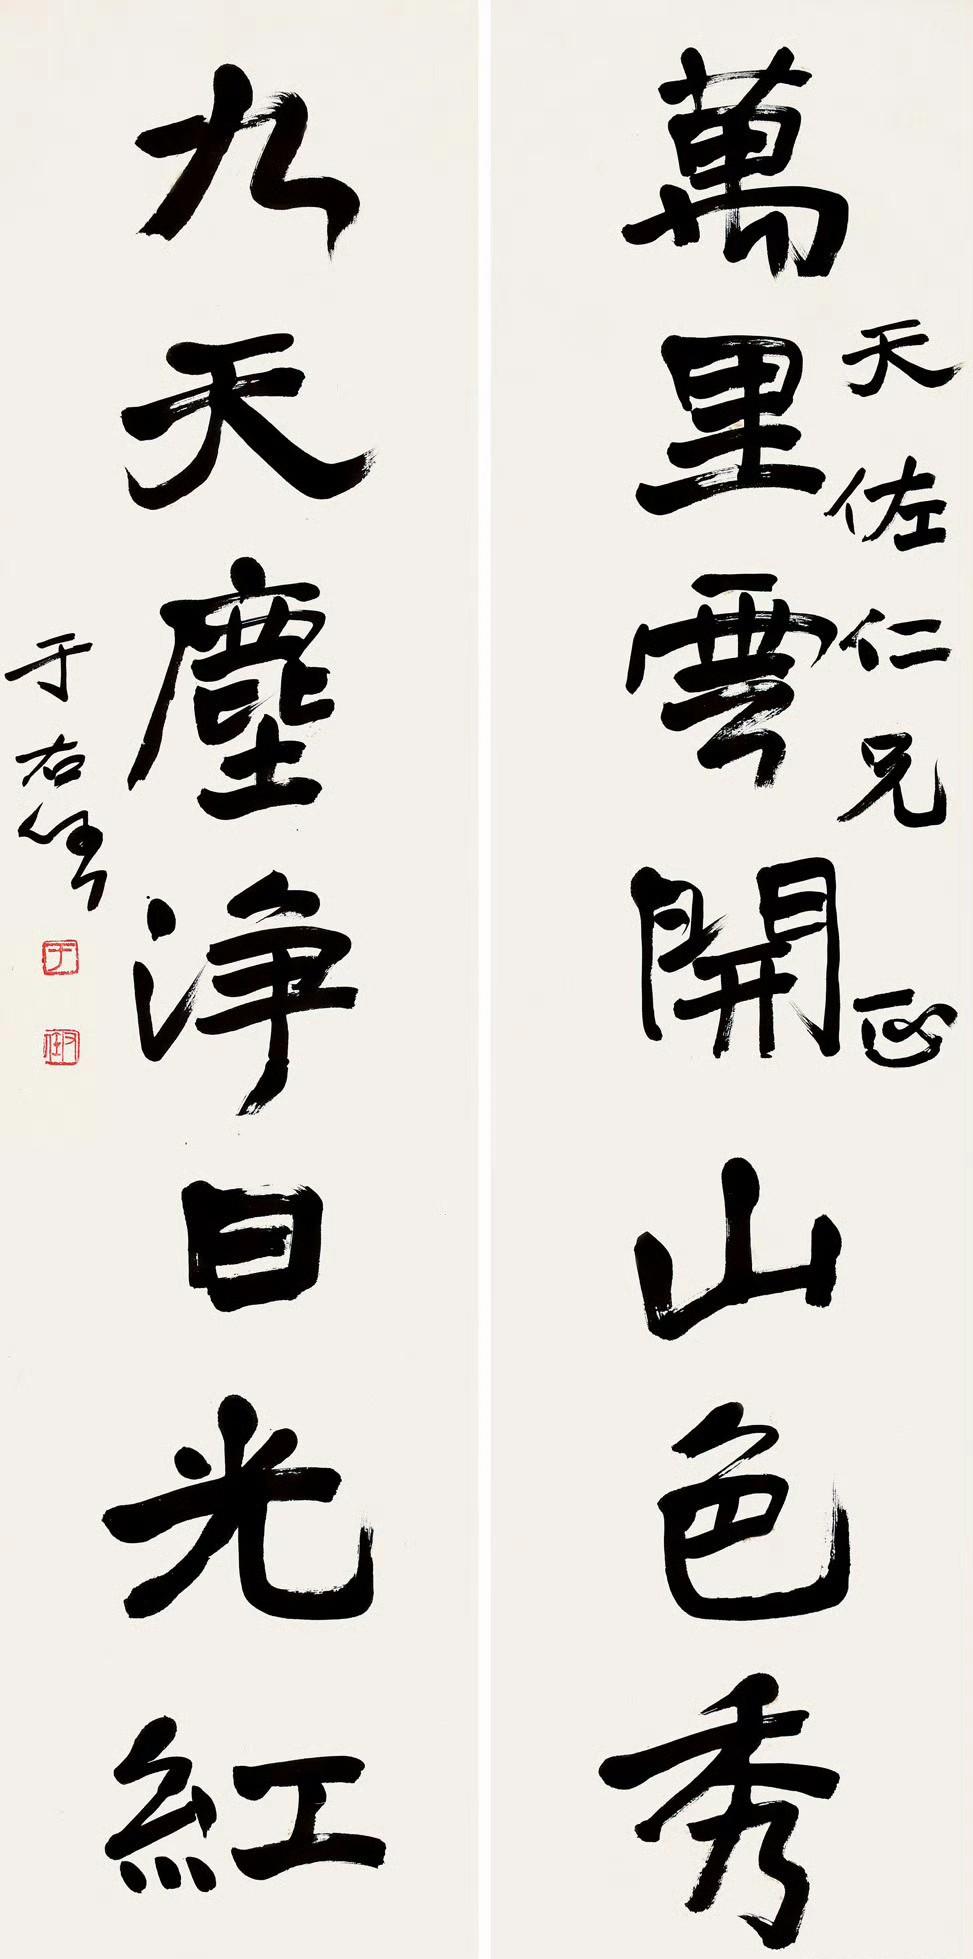 萬里雲開山色秀
天佐仁兄正
九天塵淨日光紅
于右任